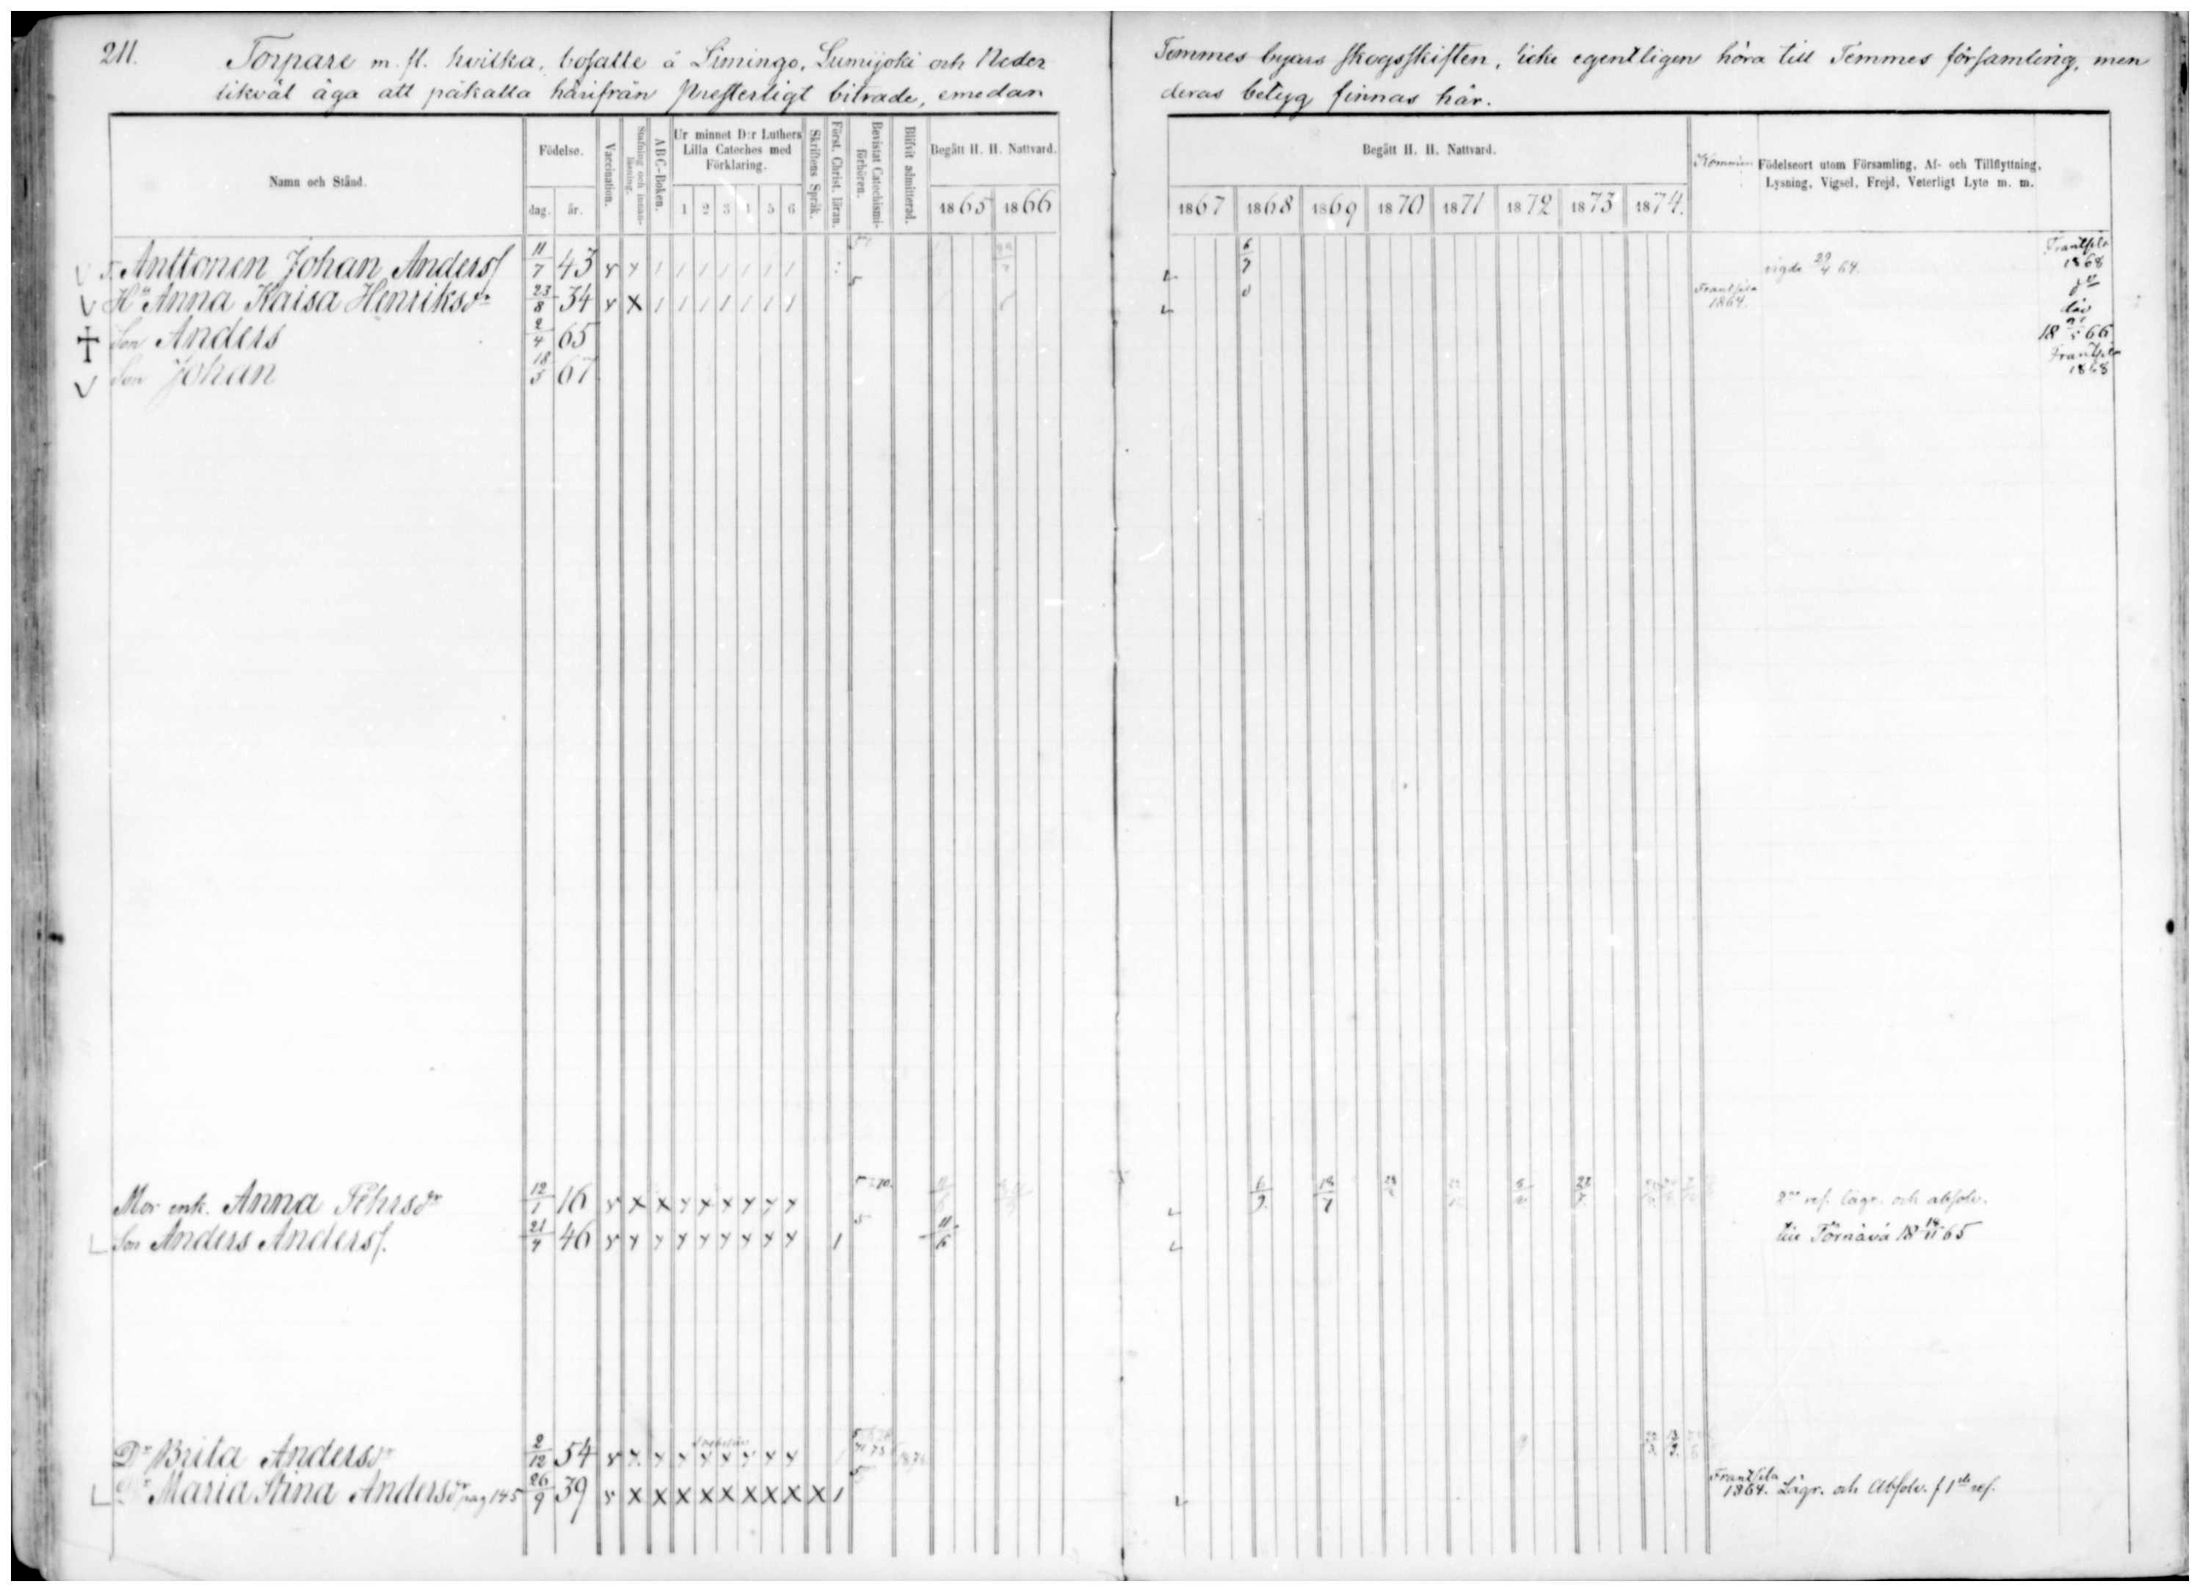 211.
Torpare m. fl. hvilka, bofatte å Limingo, Lumijoki och Neder Temmes byars skogsskiften, icke egentligen höra till Temmes församling, men
likväl äga att påkalla härifrån presterligt biträde, emedan deras betyg finnas här.
Namn och Stånd.
Födelse.
dag. år.
Vaccination.
Stafning och innanläsning.
ABC-Boken.
Ur minnet D:r Luthers Lilla Cateches med Förklaring.
1 2 3 4 5 6
Skriftens Språk.
Först. Christ. läran.
Bevistat Catechismi-förhören.
Blifvit admitterad.
Begått H. H. Nattvard.
1865 1866
Begått H. H. Nattvard.
1867 1868 1869 1870 1871 1872 1873 1874.
Födelseort utom Församling, Af- och Tillflyttning,
Lysning, Vigsel, Frejd, Veterligt Lyte m. m.
T. Anttonen Johan Anders f 11/7 43 6/7 vigde 29/4 64. Frantsila 1868
Hu Anna Kaisa Henriksdr 23/8 34 Frantsila 1864. do
Son Anders 2/4 65 död 18 66
Son Johan 18/5 67 Frantsila 1868
Mor enk. Anna Pehrsdr 12/7 16 6/9 18/7 2re ref. lägr. och absolv.
Son Anders Anders f. 21/4 46 1 5 11/6 till Törnävä 18 18/11 65
Dr Brita Andersdr 2/12 54
Dr Maria Stina Andersdr pag 145 26/9 39 1 5 Frantsila 1864. Lägr. och Absolv. f 1sta ref.